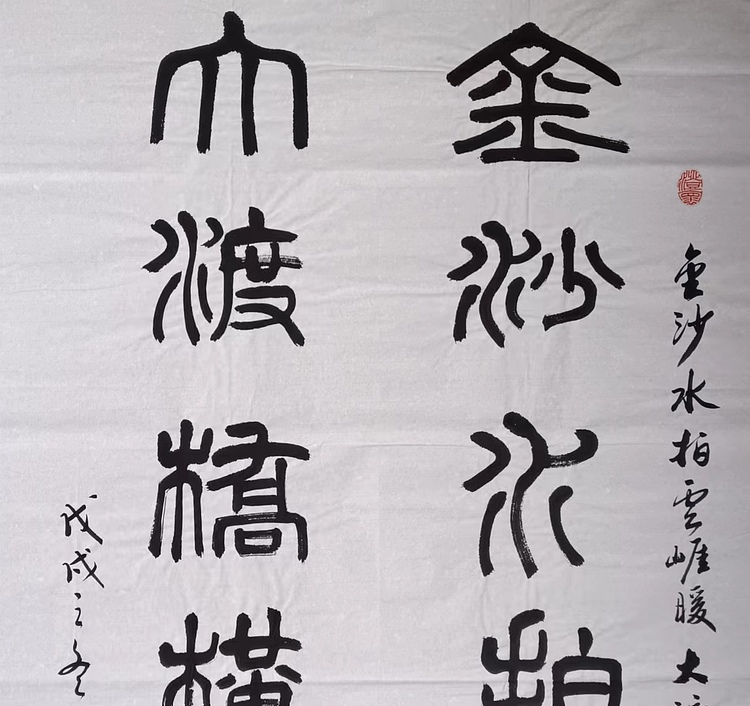 金沙水拍雲崖暖大渡
金沙水拍
大渡橋橫
戊戌之冬